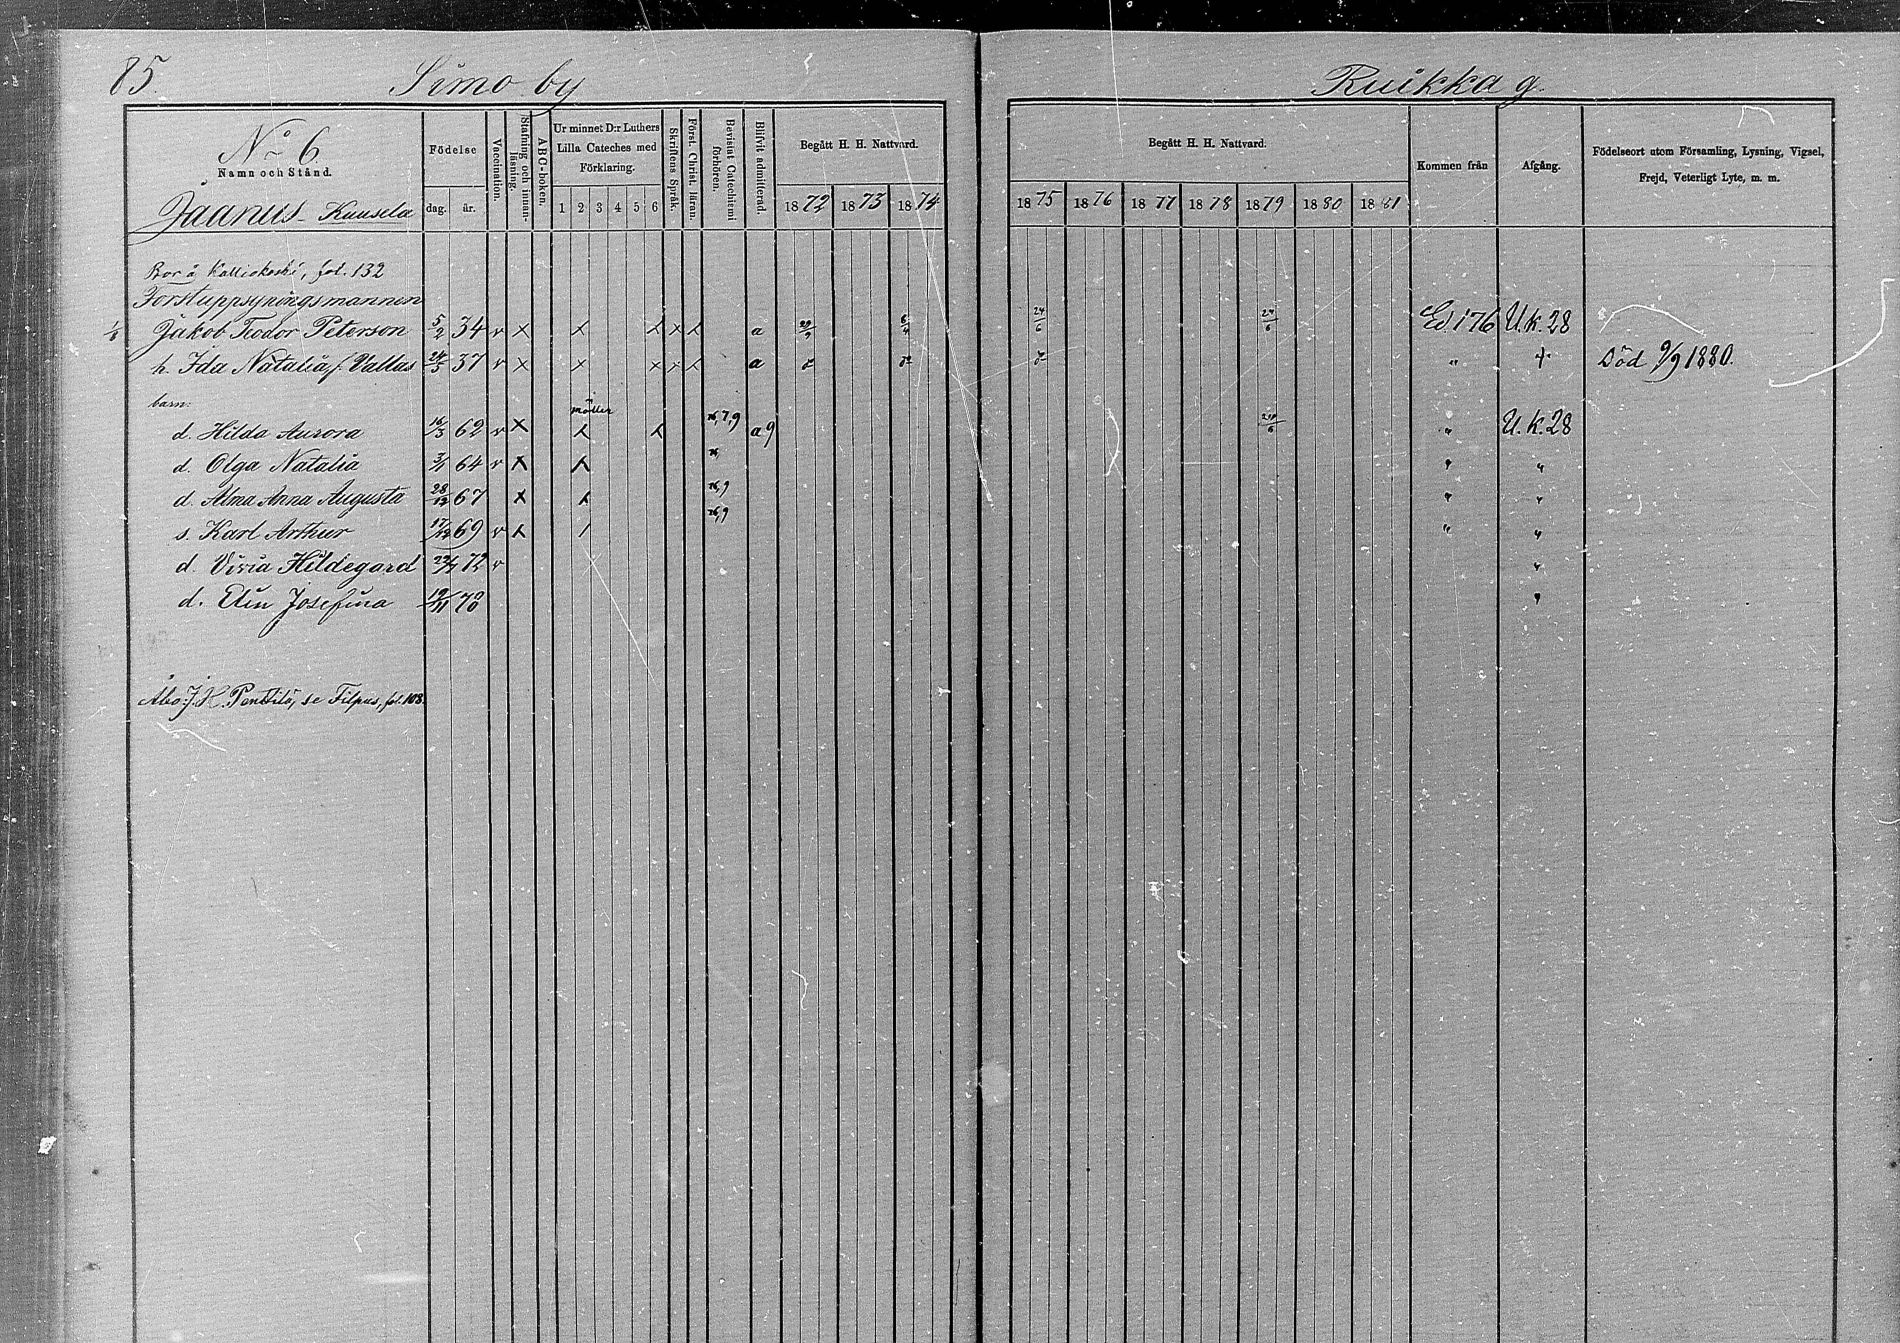 85.
Simo by
Ruikka g.
No 6
Namn och Stånd.
Jaanus - Kuusela
Födelse
dag. år.
Vaccination.
Stafning och innanläsning.
ABC-boken.
Ur minnet D:r Luthers Lilla Cateches med Förklaring.
1 2 3 4 5 6
Skriftens Språk.
Först. Christ. läran.
Bevistat Catechismi förhören.
Blifvit admitterad.
Begått H. H. Nattvard.
1872 1873 1874
Begått H. H. Nattvard.
1875 1876 1877 1878 1879 1880 1881
Kommen från
Afgång.
Födelseort utom Församling, Lysning, Vigsel, Frejd, Veterligt Lyte, m. m.
Bor å Kalliokoski, fol. 132
Forstuppsyningsmannen
Jakob Teodor Peterson 5/2 34 v x x x x x a 6/4 24/6 24/6 Ed 176 U.k.28
h. Ida Natalia f. Vallus 24/5 37 v x x x x x a " + Död 9/9 1880.
barn:
d. Hilda Aurora 16/3 62 v x x x 76,7,9 a9 24/6 " U.k.28
d. Olga Natalia 3/1 64 v x x 76, " "
d. Alma Anna Augusta 28/12 67 x x 76,9 " "
s. Karl Arthur 17/12 69 v x / 76,9 " "
d. Viria Hildegard 72 v "
d. Elin Josefina 19/11 78 "
Åbo: J. H. Penttilä, se Filpus, fol. 108.